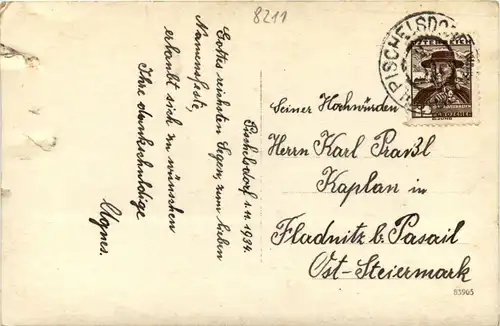 8211
PISCHELSDORF
Pischelsdorf 1. 11. 1934.
Gottes reichsten Segen, zum lieben
Namensfeste,
erlaubt sich zu wünschen
Ihre dankschuldige
Agnes.
Seiner Hochwürden
Herrn Karl Praßl
Kaplan in
Fladnitz b. Passail
Ost-Steiermark
83965